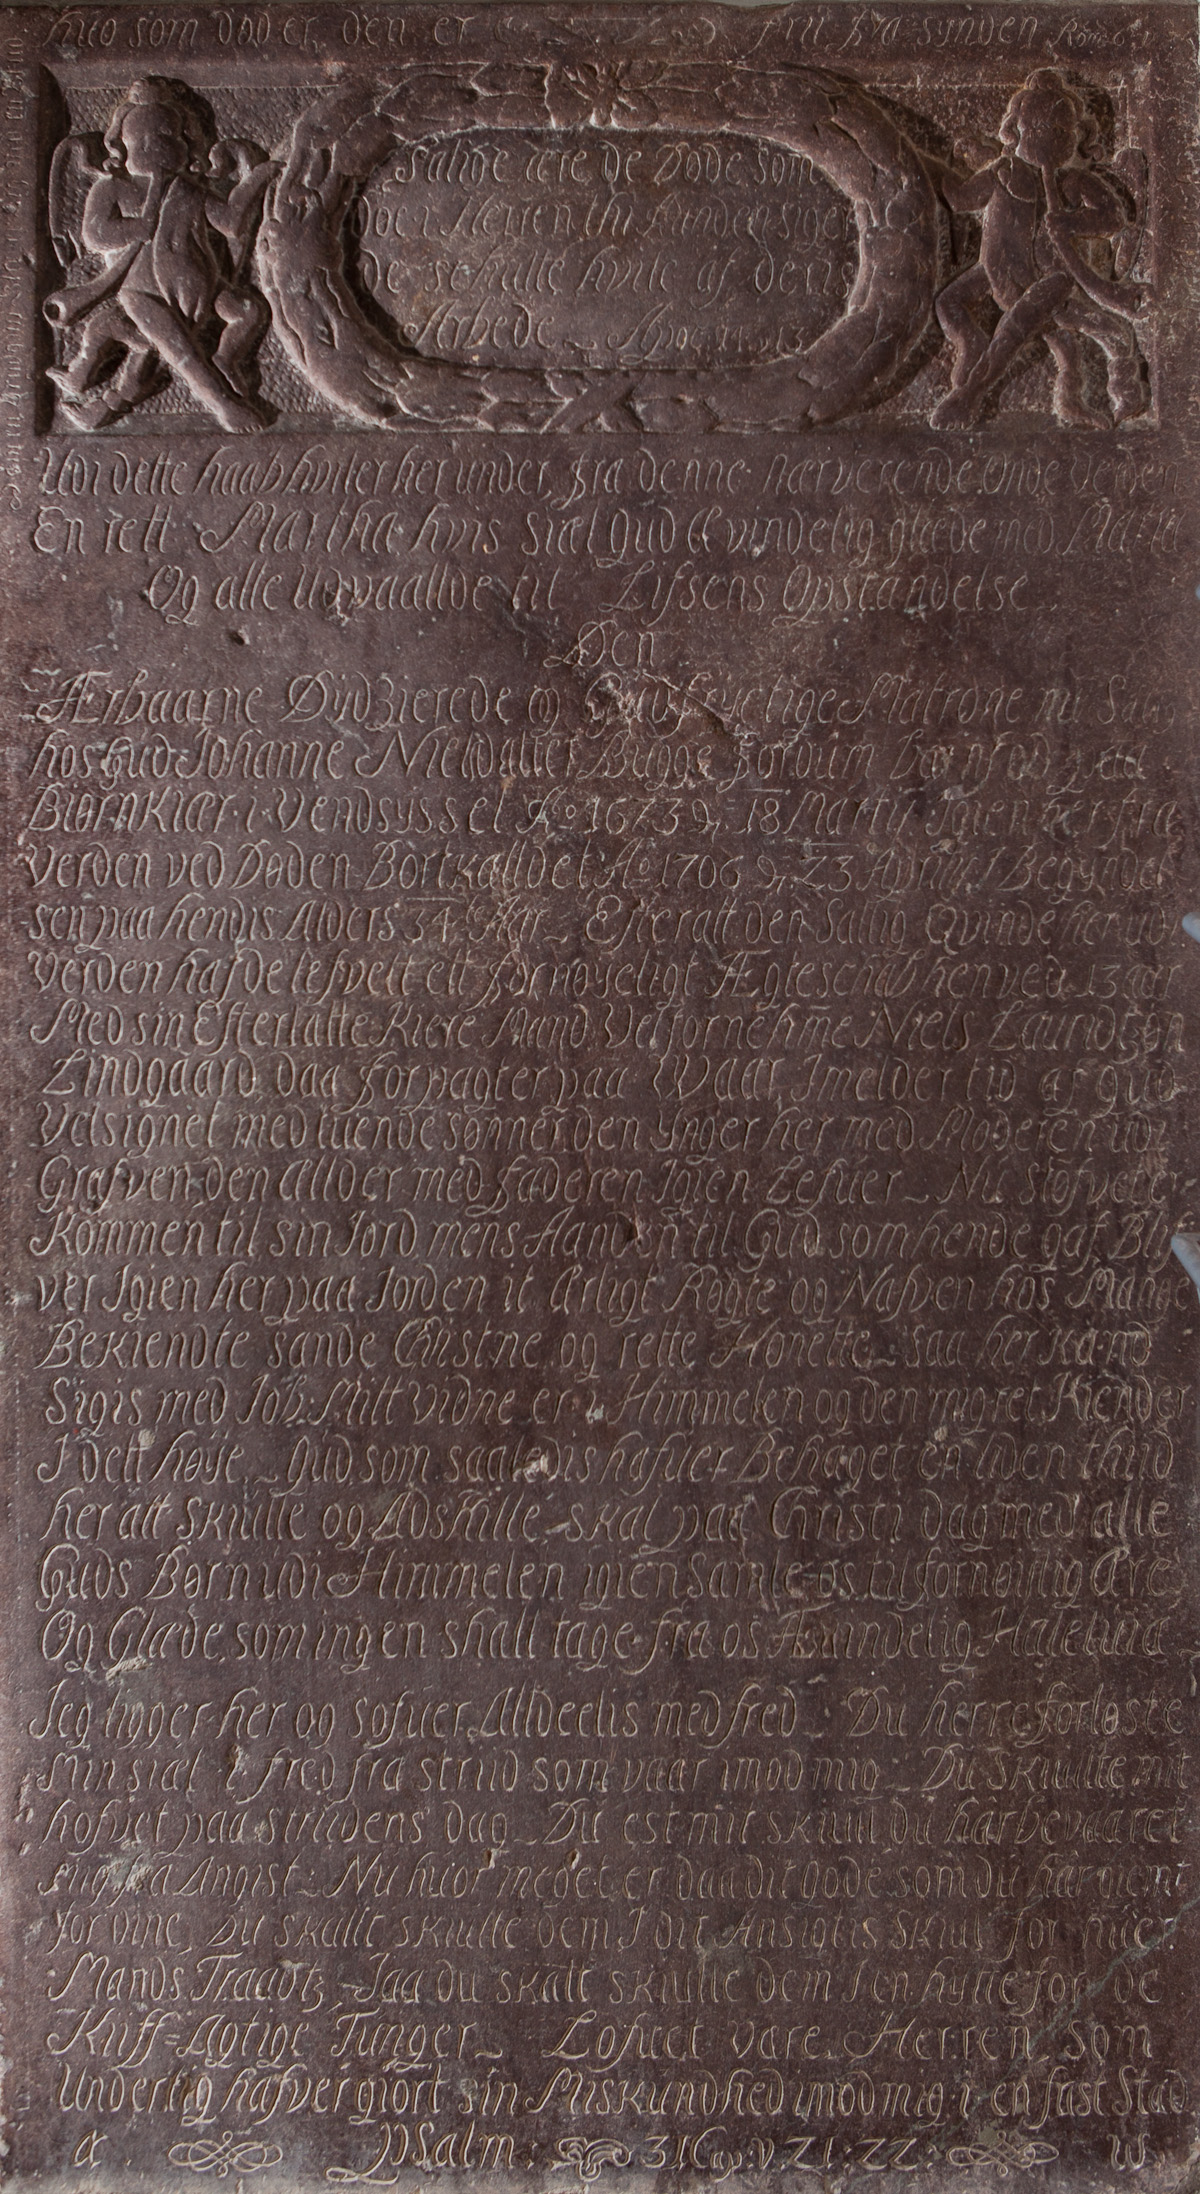 hvo som død er, den er frii fra synden Rom: 6
Salige ære de Døde som
Døe i Herren thi Aanden siger
de schulle hvile af deris
Arbede Apoc: 14. 13
Udi dette haab hviler her under, fra denne nærværende onde Verden
En rett Martha hvis Siæl Gud Ævindelig glæde med Maria
Og alle Udvaallde til Lifsens Opstandelse.
Den
Ærbaarne Dÿdzierede og Gudfryctige Matrone nu Salig
hos Gud Johanne Nielsdatter Bugge fordum barnfød paa
BiørnKiær i Vendsÿssel Ao 1673 d. 18 Martij Igien her fra
Verden ved Døden Bortkalldet Ao 1706 d. 23 Aprili I Begyndel
sen paa hendis Alders 34te Aar Efter att den Sallig Qvinde her udi
Verden hafde lefvett ett fornøyeligt Ægteschab henved 13 aar
Med sin Efterlatte Kiere Mand Velfornehme Niels Lauridtzøn
Lindgaard, daa forpagter paa Waar, Imelder tid af Gud
Velsignet med tuende sønner, den Ynger her med Moderen udi
Grafven, den Ællder med faderen Igien Lefuer Nu Støfvet er
Kommen til sin Iord mens Aanden til Gud som hende gaf Bly
ver Igien her paa Jorden it Ærligt Røgte og Nafven hos Mange
Bekiendte sande Christne, og rette Honette Saa her kand
Sigis med Job: Mitt Vidne er i Himmelen og den mig ret Kiender
I dett høye Gud, som saaledis hafuer Behaget en liden thiid
her att Skiulle og Adskille, skal paa Christi dag med alle
Guds Børn udi Himmelen igien Samle os til fornøiulig Ære
Og Glæde, som ingen shall tage fra os Ævindelig Haleluia
Jeg ligger her og Sofuer Alldeelis med fred Du herre forløste
Min siæl i fred fra striid som vaar imod mig Du Skiullte mit
hofvet paa striidens dag Du est mit skiull du har bevaaret
mig fra Angist Nu huor meget er daa dit Gode som du har giemt
for dine, Du skallt skiulle dem I dit Ansigtis Skiul for huer
Mands Traadtz, Jaa du skalt skiulle dem I en hytte for de
Kiiff=Agtige Tunger Lofuet være Herren som
Underlig hafver giort sin Miskundhed imod mig i en fast Stad
a. Psalm: 31 Cap: v. 21: 22: w.